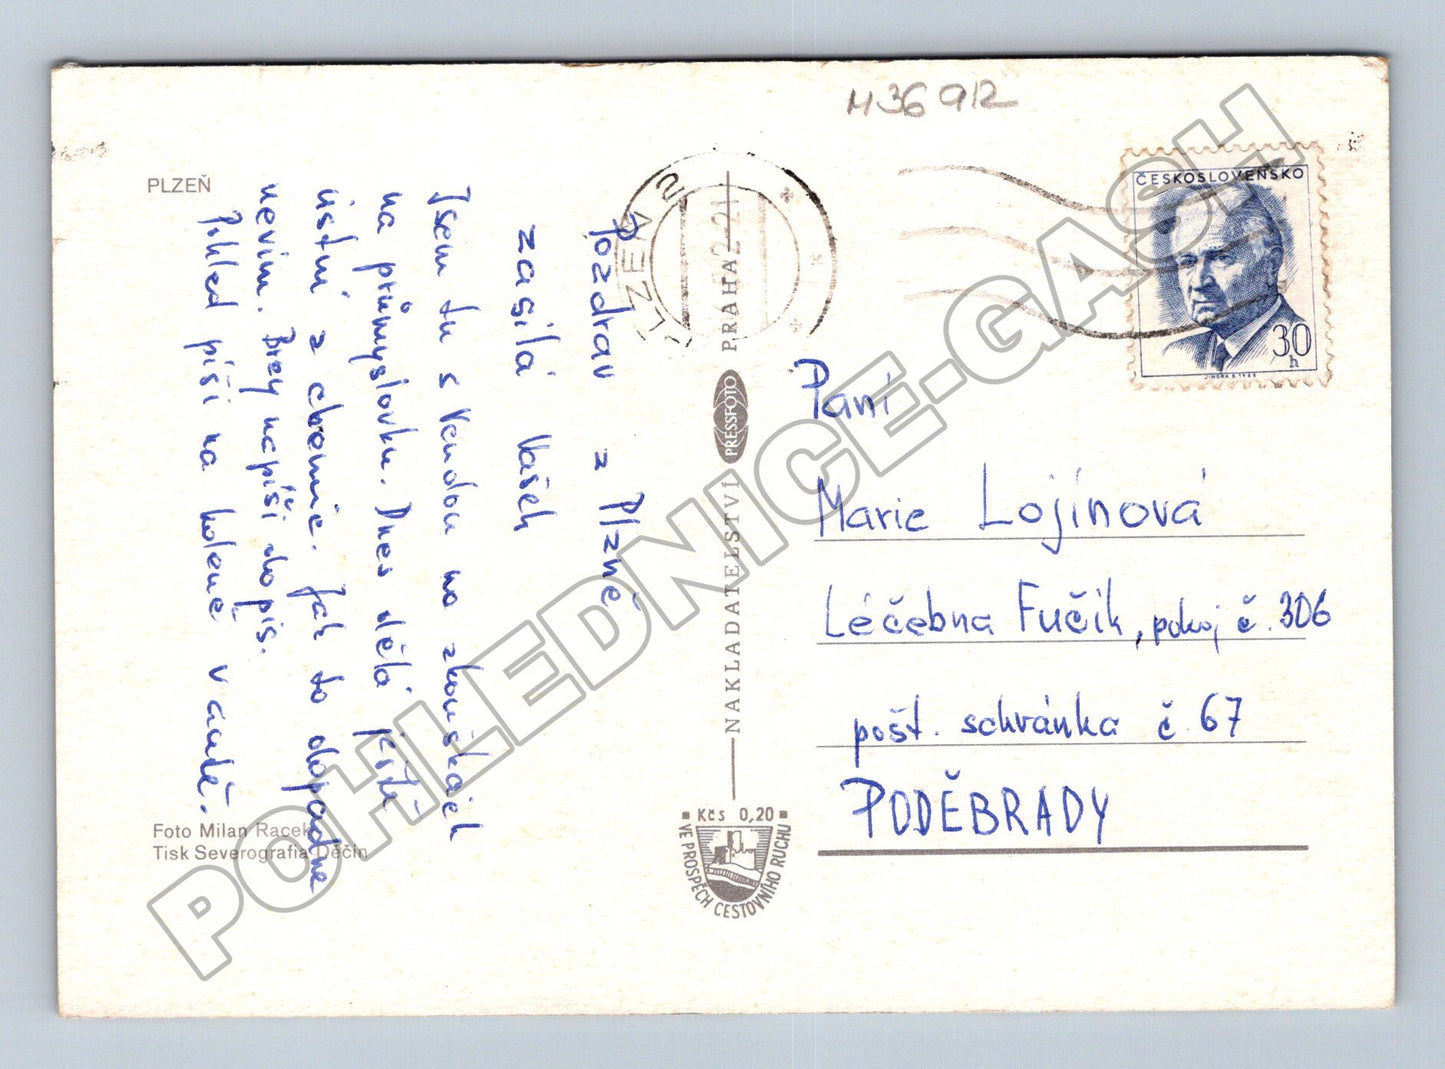 H36912
PLZEŇ
Pozdrav z Plzně
zasílá Vašek
Jsem tu s Vendou na zkouškách
na průmyslovku. Dnes dělá ještě
ústní z chemie. Jak to dopadne
nevím. Brzy napíši dopis.
Pohled píši na koleně v autě.
Foto Milan Racek
Tisk Severografia Děčín
NAKLADATELSTVÍ PRESSFOTO PRAHA
Kčs 0,20
VE PROSPĚCH CESTOVNÍHO RUCHU
PLZEŇ 2
ČESKOSLOVENSKO
30
h
Paní
Marie Lojínová
Léčebna Fučík, pokoj č. 306
pošt. schránka č. 67
PODĚBRADY
POHLEDNICE-GASH